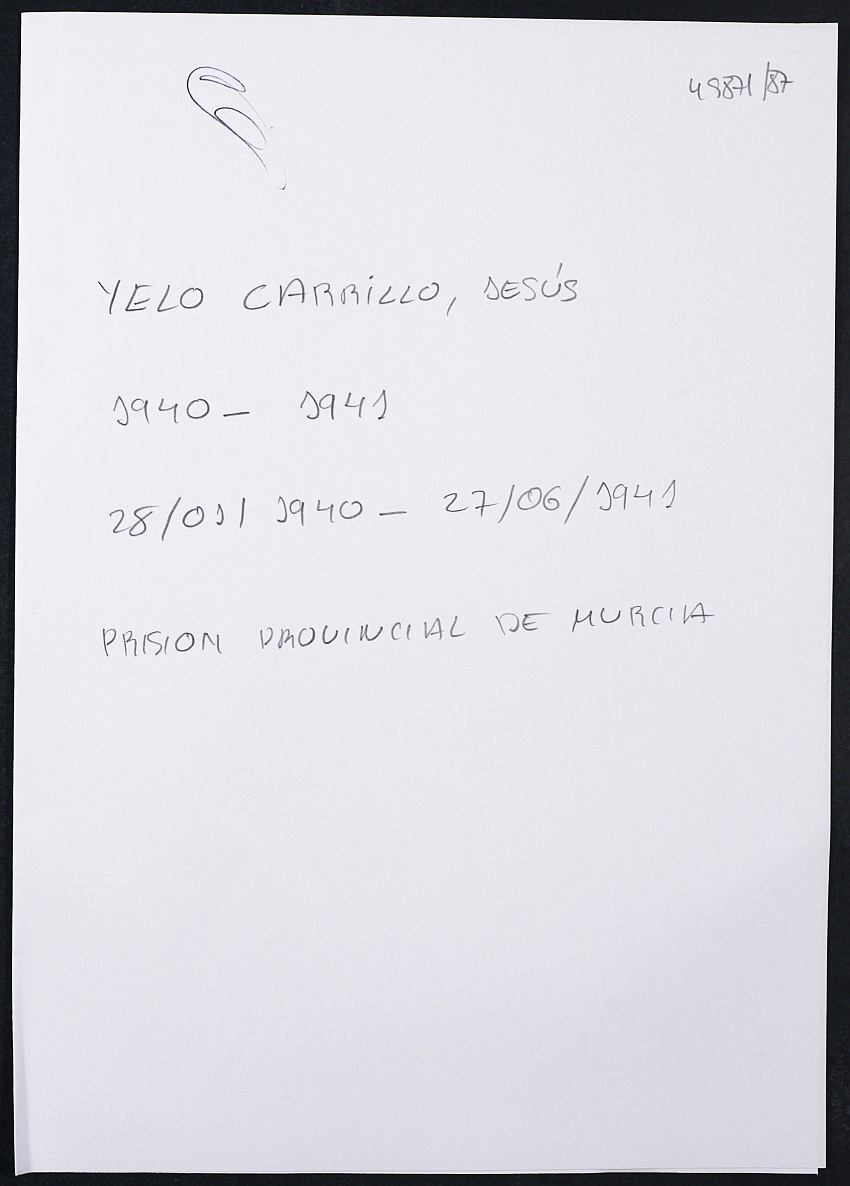 49871/87
YELO CARRILLO, JESÚS
1940 - 1941
28/01/1940 - 27/06/1941
PRISION PROVINCIAL DE MURCIA